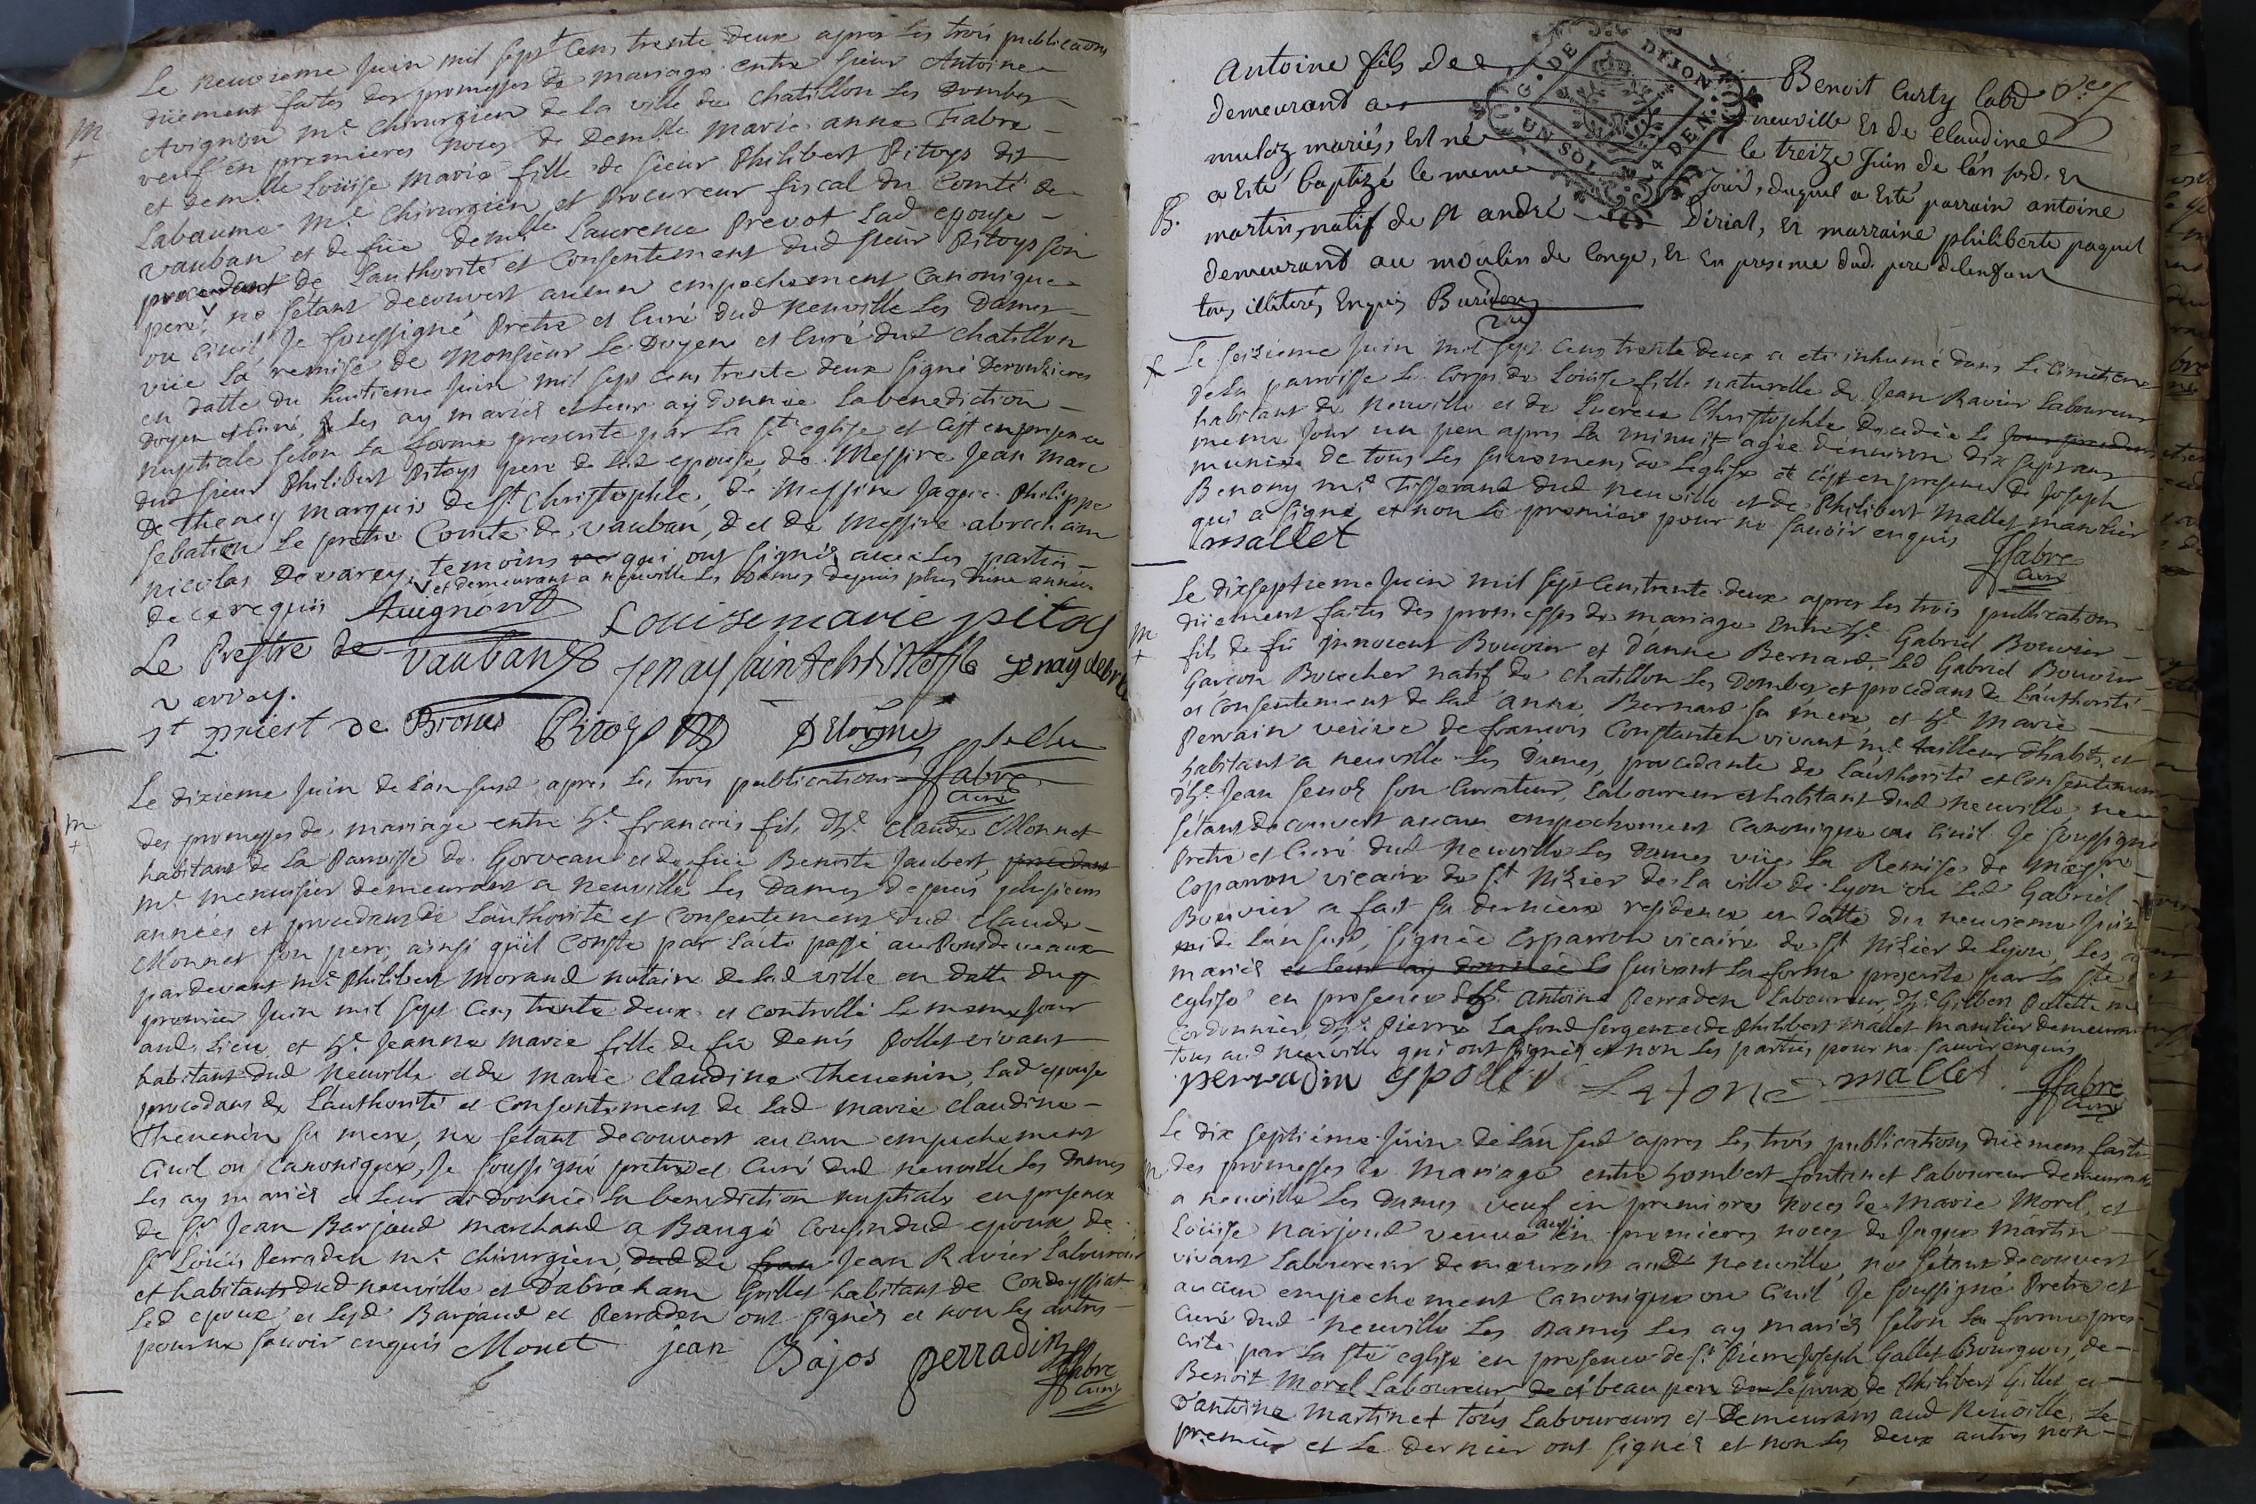 Le neuvieme Juin mil sept cens trente deux apres les trois publications
düement faites des promesses de mariage entre sieur Antoine
Avignon m.e chirurgien de la ville de chatillon les Dombes
veuf en premieres noces de Demlle marie anne Fabre
et dem.lle Loüise marie fille de sieur Philibert Pitoys dit
Labaume m.e chirurgien et Procureur fiscal du Comté de
vauban et de füe demlle Laurence Prevot lad epouse
procedant de L'authorité et Consentement dud sieur Pitoys son
pere, ne s'etant decouvert aucun empechement Canonique
ou civil, Je soussigné Pretre et Curé dud neuville les Dames
vüe la remise de Monsieur Le Doyen et Curé dud chatillon
en datte du huitieme Juin mil sept cens trente deux signé
Doyen et curé, Les ay mariés et leur aÿ donnee la benediction
nuptiale selon la forme presente par la Ste eglise et c'est en presence
dud sieur Philibert Pitoys pere de lad epouse, de Messire Jean marc
de Thenay marquis de St Christophle, de Messire Jaque Philippe
sebastien Le pretre Comte de vauban, et de Messire abraham
nicolas De varey, temoins qui ont signés avec les parties
et demeurant a neuville les Dames depuis plus d'une année
de ce requis Avignon Louise marie pitoy
Le Prestre de vauban Tenay saint christofle Tenay de
varrey.
st priest de Pitoys Delorme
M
+
Le dixieme Juin de L'an susd apres les trois publications JFabre
Curé
des promesses de mariage entre h.e francois fils d'h.e claude Monnet
habitant de la Parroisse de Gorveau et de füe Benoite Jaubert procedant
m.e menuisier demeurant a neuville les Dames depuis plusieurs
années et procedant de L'authorité et Consentement dud Claude
Monnet son pere, ainsi qu'il Conste par L'acte passé au Pondevaux
pardevant m.e Philibert Morand notaire de lad ville en datte du
premier Juin mil sept cens trente deux et controllé le meme Jour
aud. Lieu et h.e Jeanne marie fille de fü Denis Pollet vivant
habitant dud neuville et de marie Claudine Thevenin, Lad epouse
procedant de L'authorité et consentement de lad marie claudine
Thevenin sa mere, ne s'etant decouvert aucun empechement
Civil ou Canonique, Je soussigné pretre et Curé dud neuville les Dames
les ay mariés et leur ai donnée la benediction nuptiale en presence
de Sr Jean Barjaud marchand a Baugé Cousin dud epoux de
Sr Loüis Perraden m.e chirurgien, dud de fran Jean Ravier Laboureur
et habitants dud neuville et D'abraham Grillet habitant de Condeyssiat
Led epoux et lesd Barjaud et Perraden ont signés et non les autres
pour ne savoir enquis Monet jean Bajos perradin JFabre
Curé
M
+
Antoine fils de Benoit Curty labr
demeurant a neuville Et de Claudine
mulaz mariés, Est né le treize Juin de l'an susd. Et
a Esté baptizé le meme Jour, duquel a Esté parrain antoine
martin, natif de St andré Dirial, Et marraine philiberte paquet
demeurant au moulin de longe, Et En presence dud. pere de l'enfant
tous illiterés Enquis Buridon
vic
B.
G. DE DIJON
UN SOL 4 DEN.
Le seizieme Juin mil sept cens trente deux a eté inhumé dans le Cimetiere
de la parroisse le Corps de Loüise fille naturelle de Jean Ravier Laboureur
habitant de neuville et de Lucrece Christophle decedée le Jour precedent
meme Jour un peu apres la minuit agée d'environ dix sept ans
munie de tous les sacremens de L'eglise et c'est en presence de Joseph
Benony m.e Tisserand dud neuville et de Philibert Mallet manilier
qui a signé et non le premier pour ne savoir enquis
mallet JFabre
Curé
Le dixseptieme Juin mil sept cens trente deux apres les trois publications
düement faites des promesses de mariage Entre h.e Gabriel Bouvier
fils de fü Innocent Bouvier et d'anne Bernard, Led Gabriel Bouvier
Garcon Boucher natif de chatillon les Dombes et procedant de L'authorité
et Consentement de lad anne Bernard sa mere, et h.e Marie
Perrain veüve de francois Constantin vivant m.e tailleur d'habits, et
habitant a neuville les Dames, procedante de L'authorité et Consentement
d'h.e Jean Curateur, Laboureur et habitant dud neuville, ne
s'etant decouvert aucun empechement Canonique ou Civil. Je soussigné
Pretre et Curé dud neuville les Dames vüe la Remise de
Esparron vicaire de St Nizier de la ville de Lyon ou Led Gabriel
Bouvier a fait sa derniere residence en datte du neuvieme Juin
de L'an susd, signée Esparron vicaire de St Nizier de Lyon, Les
mariés et leur ay donnée la suivant la forme prescrite par la Ste
eglise en presence d'h.e Antoine Perraden Laboureur, d'h.e Gilbert Pollette
Cordonnier d'h.e Pierre Lafond sergent et de Philibert Mallet manilier demeurant
tous aud neuville qui ont signés et non les parties pour ne savoir enquis
perradin gpollet Lafond mallet JFabre
Curé
M
+
Le dix septiéme Juin de L'an susd apres les trois publications düemens faites
des promesses de Mariage entre hombert fontanet Laboureur demeurant
a neuville les Dames veuf en premieres noces de Marie Morel, et
Loüise Narjoud veuve aussi en premieres noces de Jaque Martin
vivant Laboureur demeurant aud neuville, ne s'etant decouvert
aucun empechement Canonique ou Civil Je soussigné Pretre et
Curé dud neuville les Dames Les ay mariés selon la forme pres
crite par la Ste eglise en presence de Sr Pierre Joseph Gallet Bourgeois, de
Benoit Morel Laboureur beau pere de L'epoux de Philibert Gillet et
d'antoine Martinet tous Laboureurs et Demeurans aud Neuville, Le
premier et le dernier ont signés et non les deux autres non